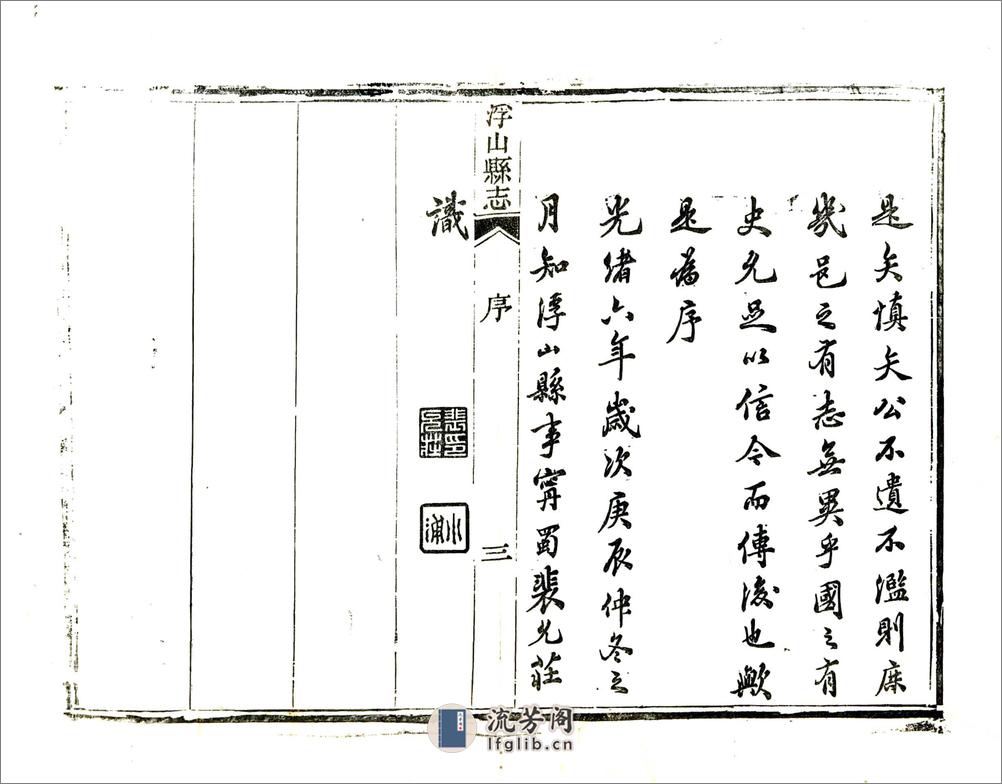 是矣慎矣公不遺不濫則庶
幾邑之有志無異乎國之有
史允足以信今而傳後也歟
是為序
光緒六年歲次庚辰仲冬之
月知浮山縣事甯蜀裴允莊
浮山縣志 序 三
識
裴印允莊
小浦
流芳阁
lfglib.cn